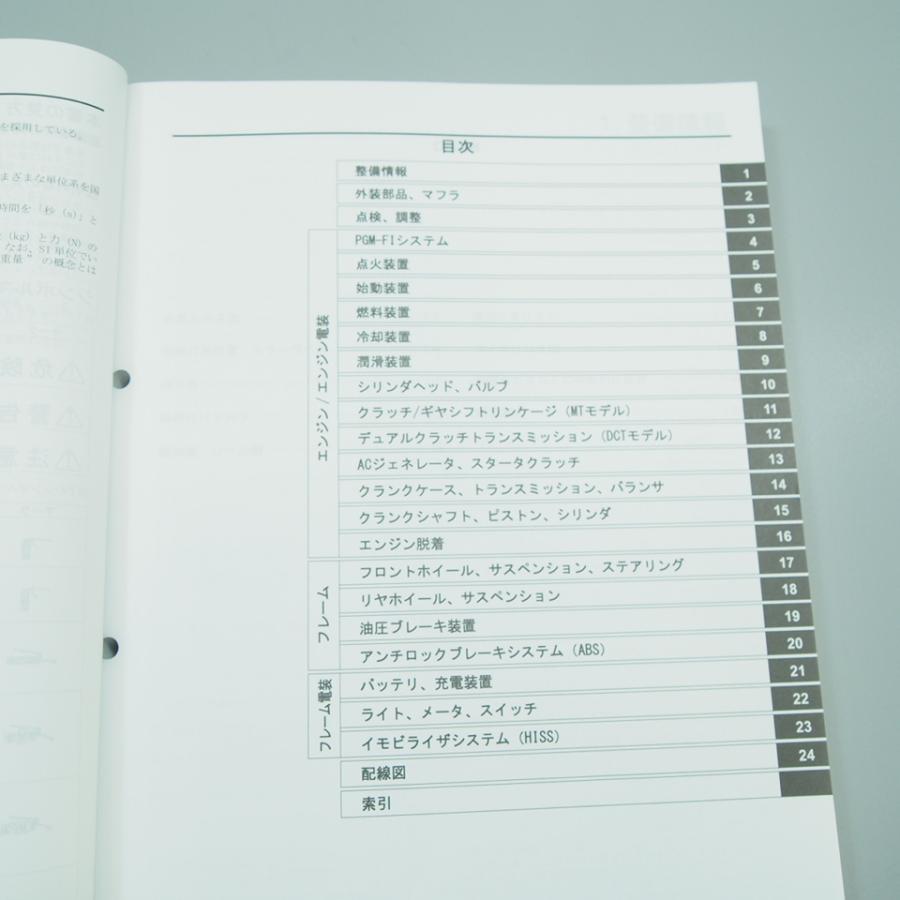 を採用している。
まざまな単位系を国
時間を「秒（s）」と
（kg）と力（N）の
なお，SI 単位でい
重量” の概念とは
目次
整備情報 1
外装部品、マフラ 2
点検、調整 3
エンジン / エンジン電装
PGM-FIシステム 4
点火装置 5
始動装置 6
燃料装置 7
冷却装置 8
潤滑装置 9
シリンダヘッド、バルブ 10
クラッチ/ギヤシフトリンケージ（MTモデル） 11
デュアルクラッチトランスミッション（DCTモデル） 12
ACジェネレータ、スタータクラッチ 13
クランクケース、トランスミッション、バランサ 14
クランクシャフト、ピストン、シリンダ 15
エンジン脱着 16
フレーム
フロントホイール、サスペンション、ステアリング 17
リヤホイール、サスペンション 18
油圧ブレーキ装置 19
アンチロックブレーキシステム（ABS） 20
フレーム電装
バッテリ、充電装置 21
ライト、メータ、スイッチ 22
イモビライザシステム（HISS） 23
配線図 24
索引